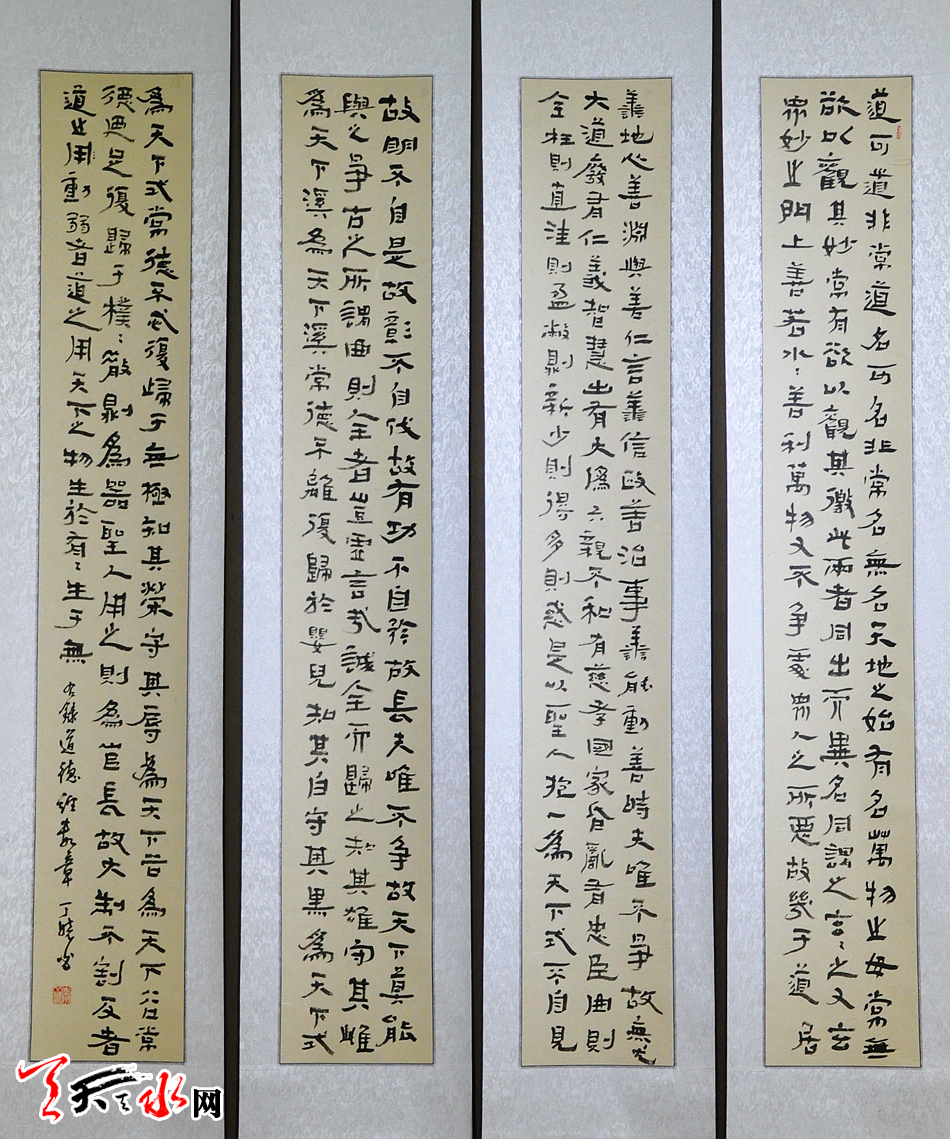 道可道非常道名可名非常名無名天地之始有名萬物之母常無
欲以觀其妙常有欲以觀其徼此兩者同出而異名同謂之玄〻之又玄
眾妙之門上善若水〻善利萬物又不争處眾人之所惡故幾于道居
善地心善淵與善仁言善信政善治事善能動善時夫唯不爭故無尤
大道廢有仁義智慧出有大偽六親不和有慈孝國家昏亂有忠臣曲則
全枉則直洼則盈敝則新少則得多則惑是以聖人抱一為天下式不自見
故明不自是故彰不自伐故有功不自矜故長夫唯不争故天下莫能
與之爭古之所謂曲則全者豈虛言哉誠全而歸之知其雄守其雌
為天下溪為天下溪常德不離復歸於嬰兒知其白守其黑為天下式
為天下式常德不忒復歸于無極知其榮守其辱為天下谷為天下谷常
德迺足復歸于樸〻散則為器聖人用之則為官長故大制不割反者
道之用動弱者道之用天下之物生於有〻生于無
右錄道德經數章 丁
天天天水网